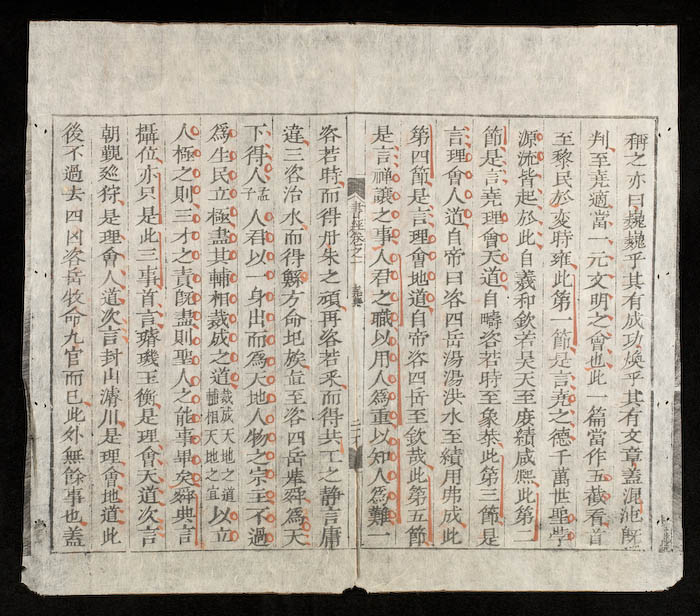 稱之亦曰巍巍乎其有成功煥乎其有文章蓋混沌旣
判至堯適當一元文明之會也此一篇當作五截看首
至黎民於变時雍此第一節是言堯之德千萬世聖學
源流皆起於此自羲和欽若昊天至庶績咸熙此第二
節是言堯理會天道自疇咨若時至象恭此第三節是
言理會人道自帝曰咨四岳湯湯洪水至績用弗成此
第四節是言理會地道自帝咨四岳至欽哉此第五節
是言禅讓之事人君之職以用人爲重以知人爲難一
書經卷之一 堯典
咨若時而得丹朱之頑再咨若采而得共工之靜言庸
違三咨治水而得鯀方命圮族直至咨四岳舉舜爲天
下得人孟子人君以一身出而爲天地人物之宗主不過
爲生民立極盡其輔相裁成之道裁成天地之道輔相天地之宜以立
人極之則三才之責旣盡則聖人之能事畢矣舜典言
攝位亦只是此三事首言璿璣玉衡是理會天道次言
朝覲廵狩是理會人道次言封山濬川是理會地道此
後不過去四凶咨岳牧命九官而已此外無餘事也蓋